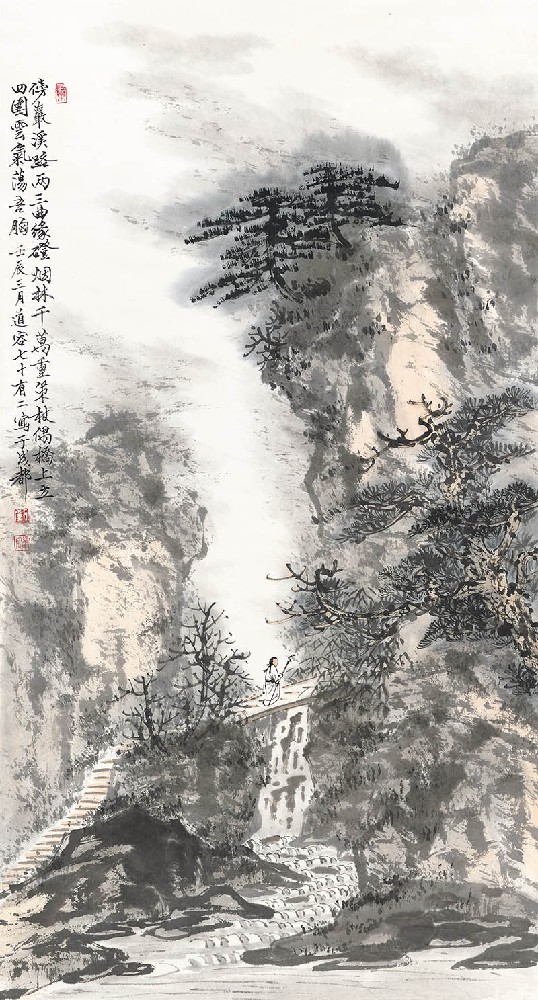 傍巖溪路兩三曲緣磴烟林千萬重策杖偶橋上立
四圍雲氣蕩吾胸 壬辰三月道容七十有二寫于成都